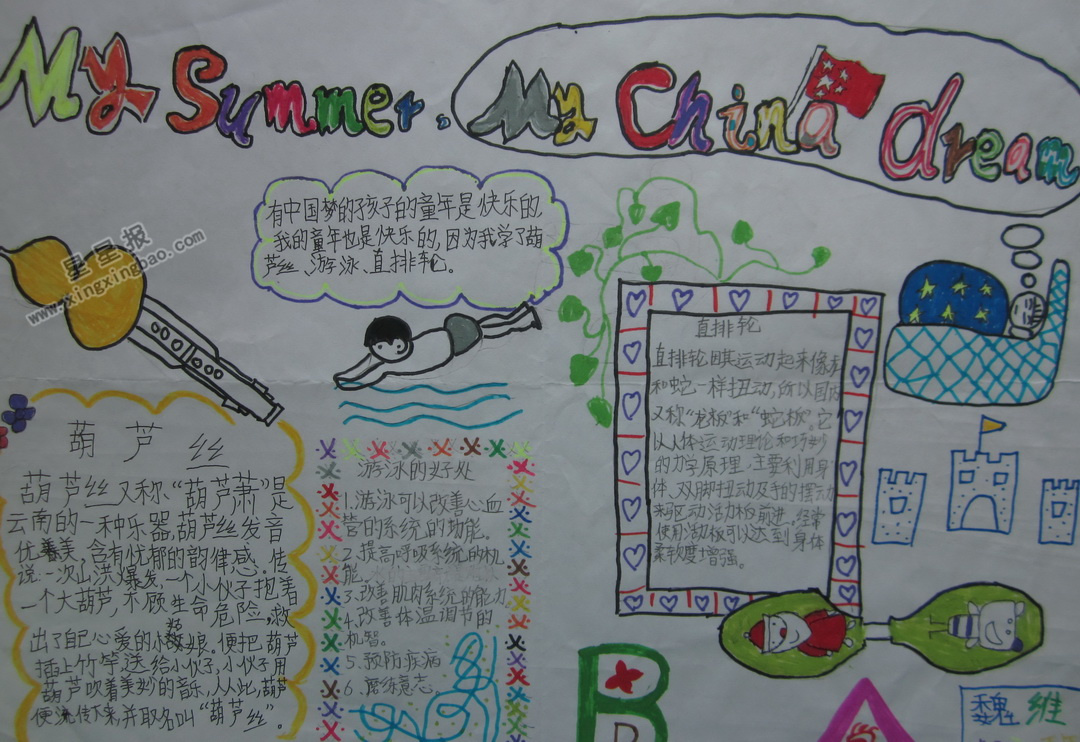 My Summer, My China dream
有中国梦的孩子的童年是快乐的,
我的童年也是快乐的,因为我学了葫
芦丝、游泳、直排轮。
星星报
www.xingxingbao.com
葫芦丝
葫芦丝又称“葫芦萧”是
云南的一种乐器,葫芦丝发音
优美,含有忧郁的韵律感。传
说一次山洪爆发,一个小伙子抱着
一个大葫芦,不顾生命危险,救
出了自己心爱的小姑娘。便把葫芦
插上竹竿送给小伙子,小伙子用
葫芦吹着美妙的音乐,从此,葫芦
便流传下来,并取名叫“葫芦丝”。
游泳的好处
1.游泳可以改善心血
管的系统的功能。
2.提高呼吸系统的机
能。
3.改善肌肉系统的能力
4.改善体温调节的
机智。
5.预防疾病
6.磨练意志。
直排轮
直排轮因其运动起来像龙
和蛇一样扭动,所以国内
又称“龙板”和“蛇板”。它
以人体运动理论和巧妙
的力学原理,主要利用身
体、双脚扭动及手的摆动
来驱动活力板前进,经常
使用活力板可以达到身体
柔软度增强。
B
D
魏维